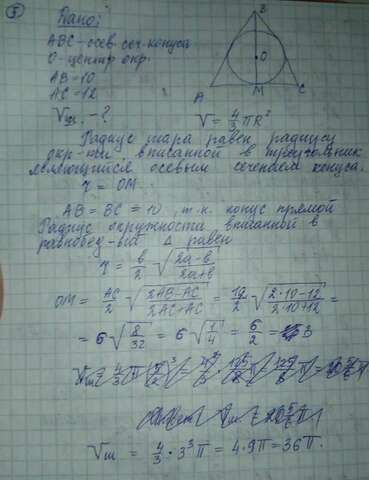 5 Дано:
ABC - осев. сеч. конуса
O - центр окр.
AB = 10
AC = 12
Vш. - ?
B
O
A M C
V = 4/3 πR³
Радиус шара равен радиусу
окр-ти, вписанной в треугольник
являющийся осевым сечением конуса.
r = OM
AB = BC = 10, т.к. конус прямой
Радиус окружности вписанной в
равнобед-ый Δ равен
r = b/2 · √((2a-b)/(2a+b))
OM = AC/2 · √((2AB-AC)/(2AB+AC)) = 12/2 · √((2·10-12)/(2·10+12)) =
= 6 √(8/32) = 6 √(1/4) = 6/2 = 3
Vш = 4/3 · 3³π = 4·9π = 36π.